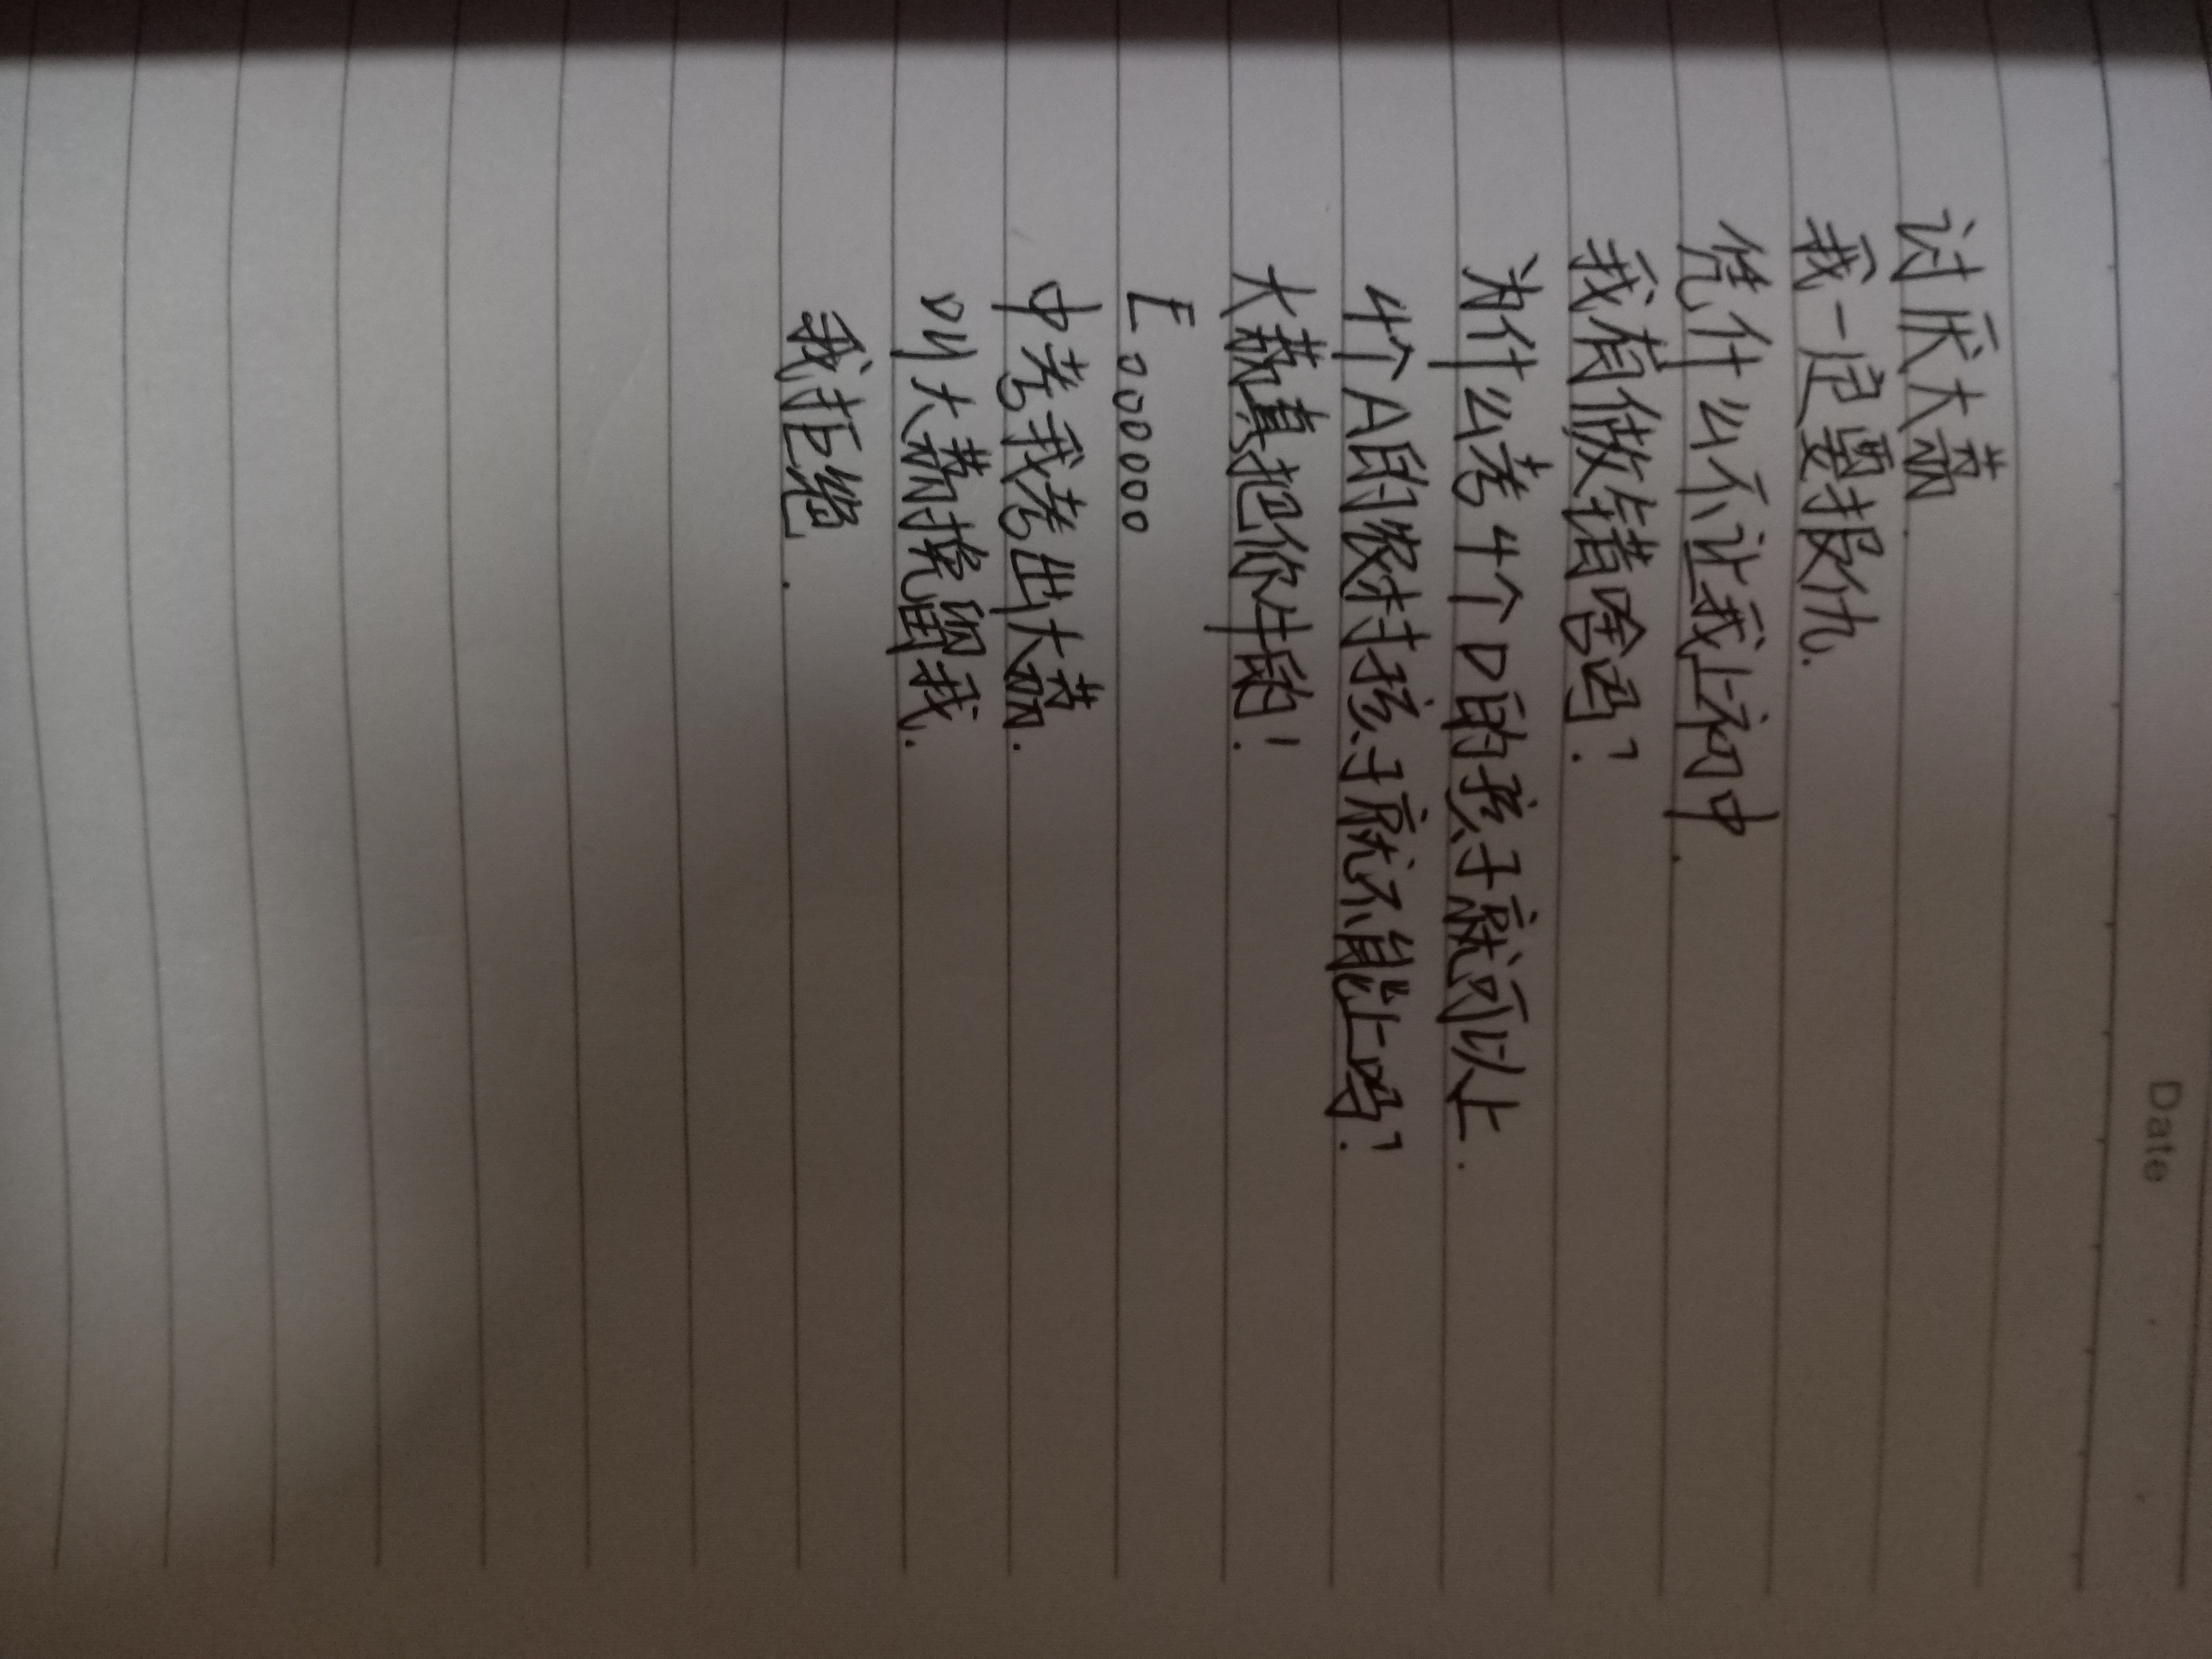 Date
讨厌大荔.
我一定要报仇.
凭什么不让我上初中.
我有做错啥吗?
为什么考4个D的孩子就可以上.
4个A的农村孩子就不能上吗?
大荔真把你牛的!
E。。。。。。。
中考我考出大荔.
叫大荔挽留我.
我拒绝.